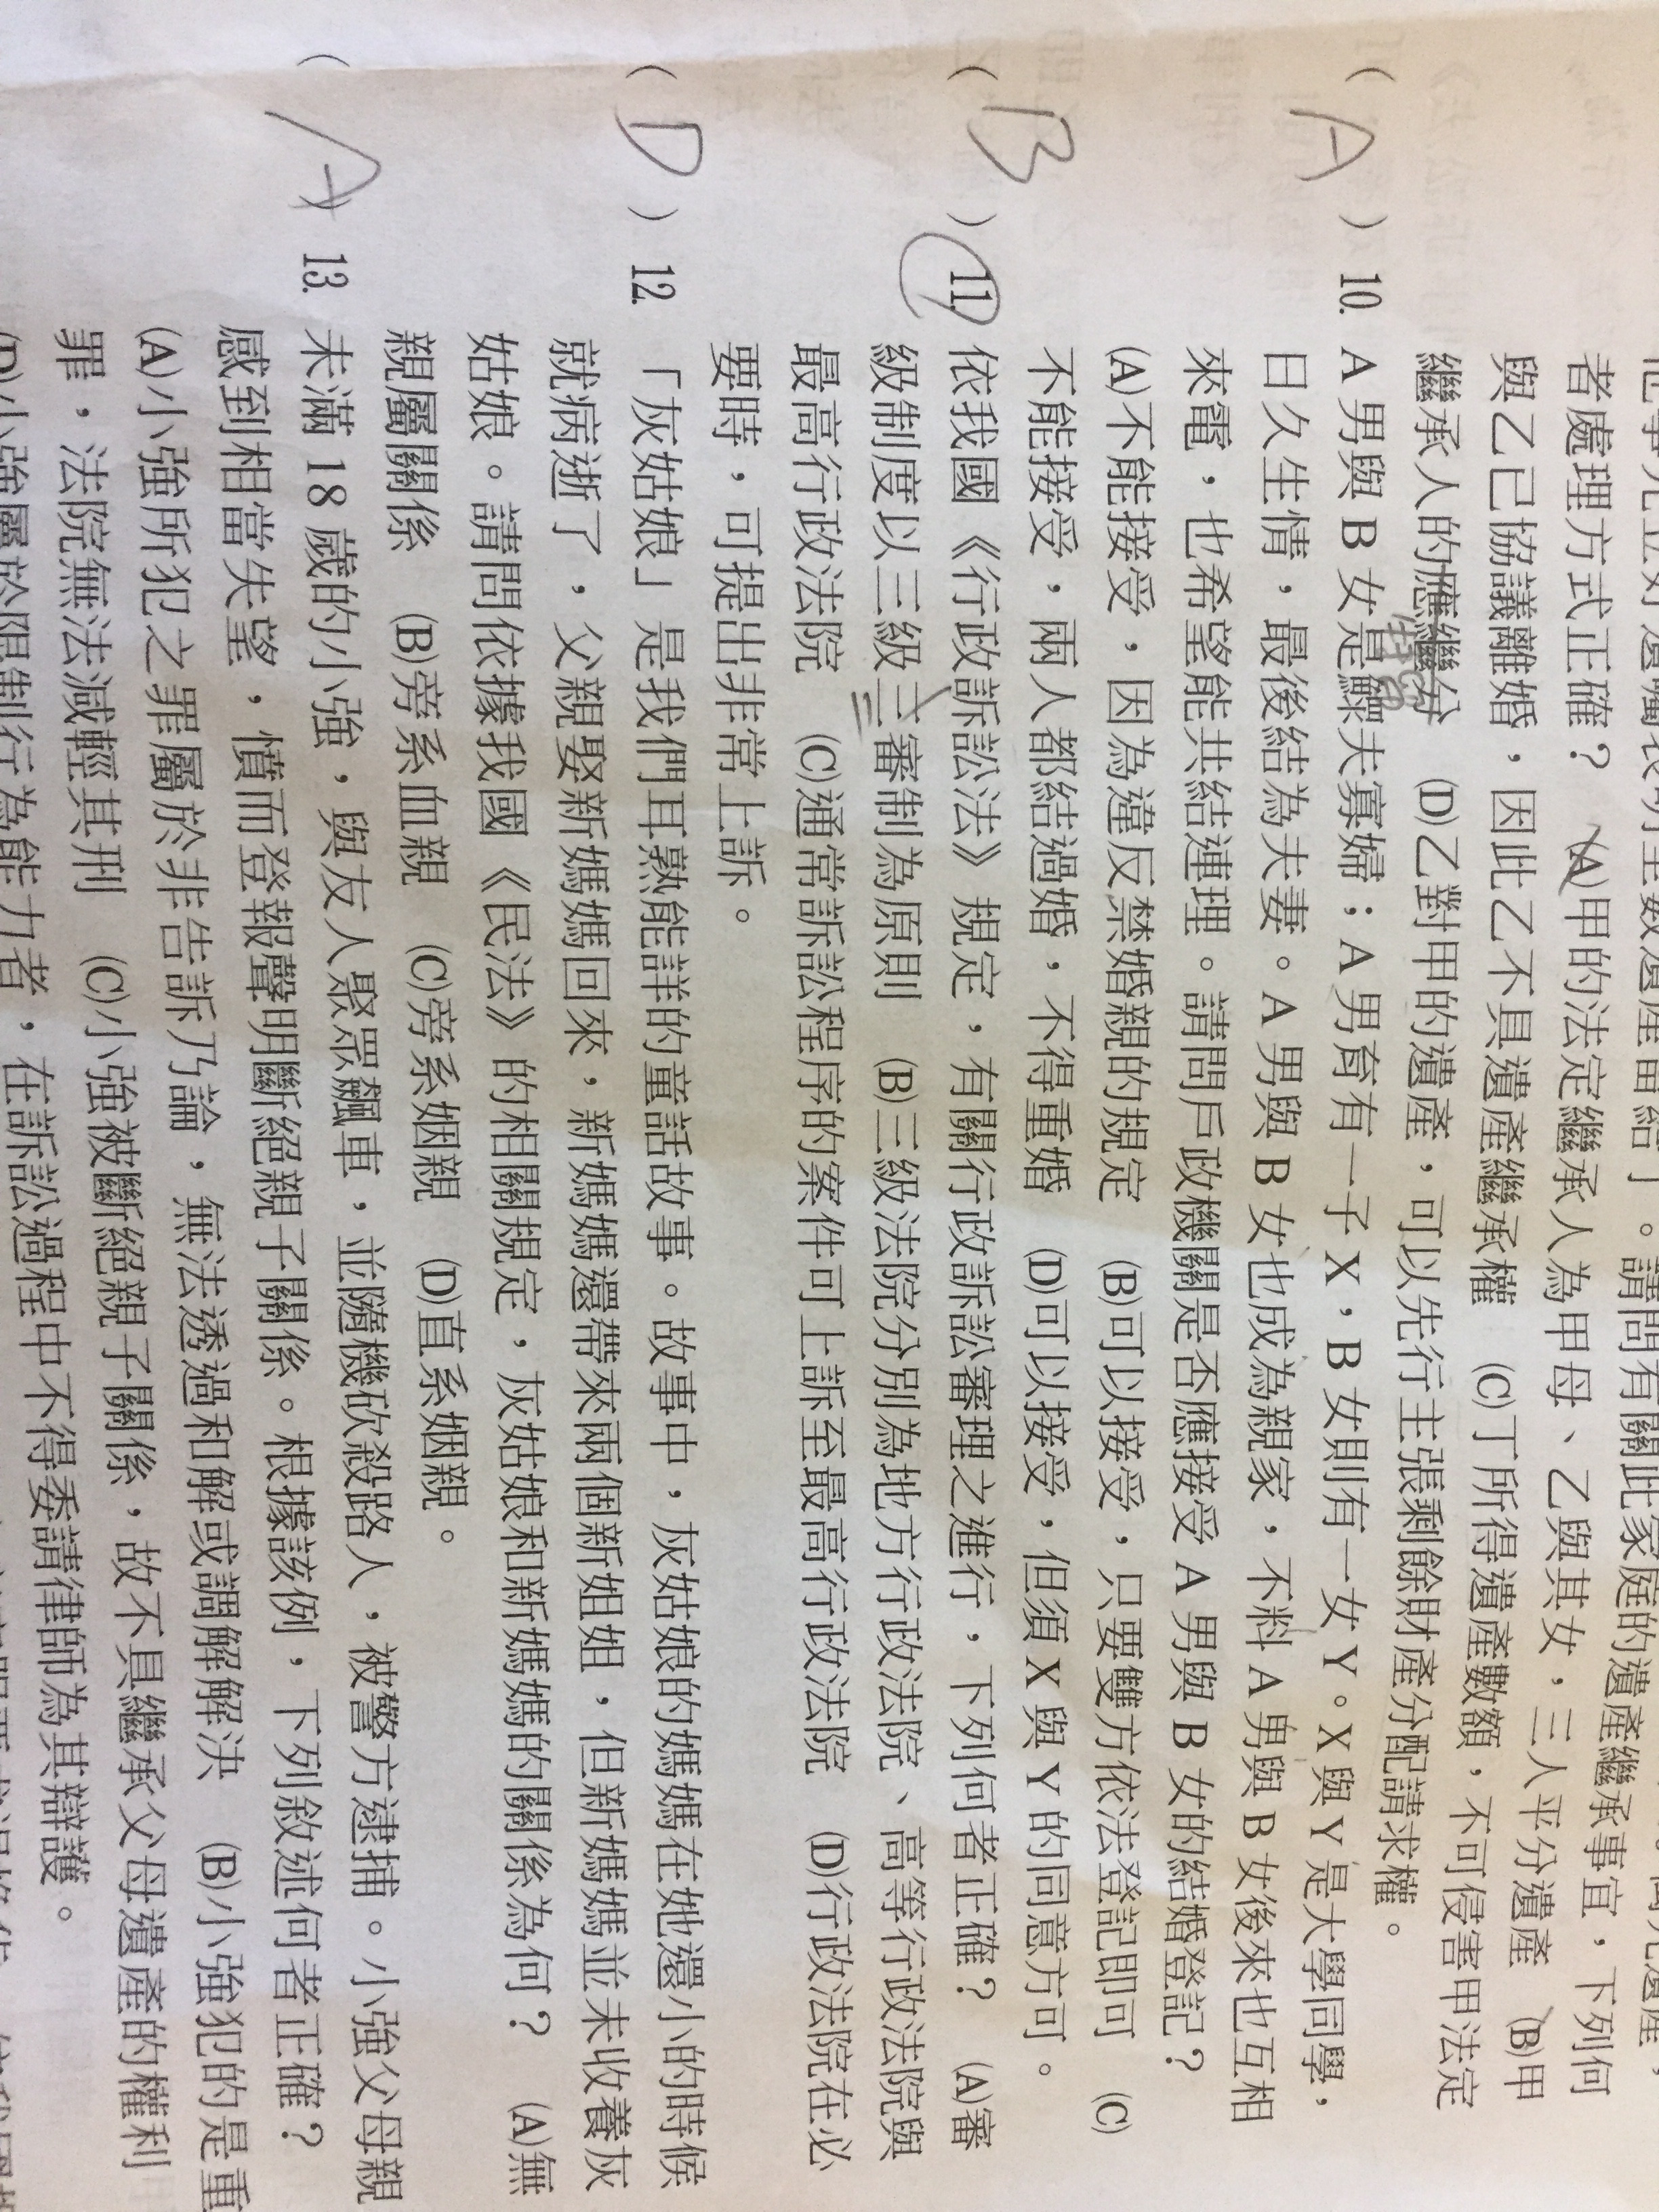 者處理方式正確？　(A)甲的法定繼承人為甲母、乙與其女，三人平分遺產　(B)甲
與乙已協議離婚，因此乙不具遺產繼承權　(C)丁所得遺產數額，不可侵害甲法定
繼承人的應繼分　(D)乙對甲的遺產，可以先行主張剩餘財產分配請求權。
( A ) 10. A 男與 B 女是鰥夫寡婦；A 男育有一子 X，B 女則有一女 Y。X 與 Y 是大學同學，
日久生情，最後結為夫妻。A 男與 B 女也成為親家，不料 A 男與 B 女後來也互相
來電，也希望能共結連理。請問戶政機關是否應接受 A 男與 B 女的結婚登記？
(A)不能接受，因為違反禁婚親的規定　(B)可以接受，只要雙方依法登記即可　(C)
不能接受，兩人都結過婚，不得重婚　(D)可以接受，但須 X 與 Y 的同意方可。
( B ) 11. 依我國《行政訴訟法》規定，有關行政訴訟審理之進行，下列何者正確？　(A)審
級制度以三級三審制為原則　(B)三級法院分別為地方行政法院、高等行政法院與
最高行政法院　(C)通常訴訟程序的案件可上訴至最高行政法院　(D)行政法院在必
要時，可提出非常上訴。
( D ) 12. 「灰姑娘」是我們耳熟能詳的童話故事。故事中，灰姑娘的媽媽在她還小的時候
就病逝了，父親娶新媽媽回來，新媽媽還帶來兩個新姐姐，但新媽媽並未收養灰
姑娘。請問依據我國《民法》的相關規定，灰姑娘和新媽媽的關係為何？　(A)無
親屬關係　(B)旁系血親　(C)旁系姻親　(D)直系姻親。
( A ) 13. 未滿 18 歲的小強，與友人聚眾飆車，並隨機砍殺路人，被警方逮捕。小強父母親
感到相當失望，憤而登報聲明斷絕親子關係。根據該例，下列敘述何者正確？
(A)小強所犯之罪屬於非告訴乃論，無法透過和解或調解解決　(B)小強犯的是重
罪，法院無法減輕其刑　(C)小強被斷絕親子關係，故不具繼承父母遺產的權利
(D)小強屬於限制行為能力者，在訴訟過程中不得委請律師為其辯護。